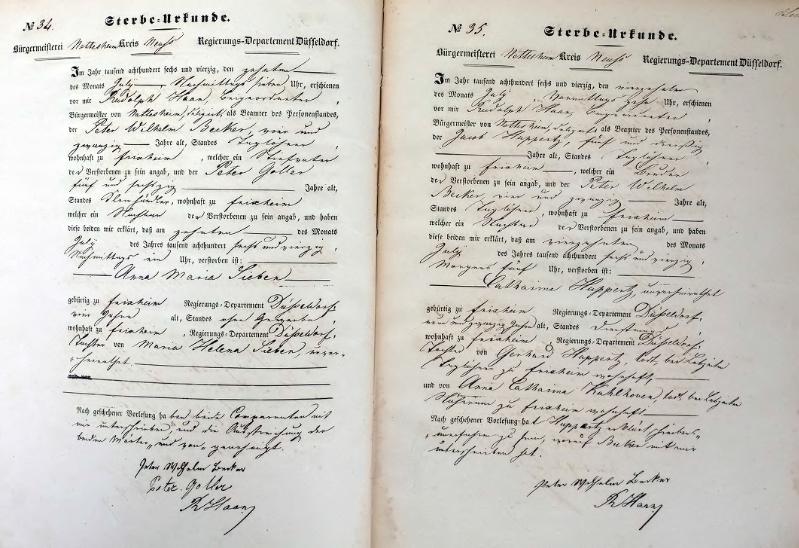 № 34.
Sterbe-Urkunde.
Bürgermeisterei Nettesheim Kreis Neuß Regierungs-Departement Düsseldorf.
Im Jahr tausend achthundert sechs und vierzig, den zehnten
des Monats July Nachmittags Uhr, erschienen
vor mir Rudolph Haan, Bürgermeister,
Bürgermeister von Nettesheim, als Beamter des Personenstandes,
der Peter Wilhelm Becker, vier und
zwanzig Jahre alt, Standes Taglöhner
wohnhaft zu Frixheim, welcher ein Stiefvater
der Verstorbenen zu sein angab, und der Peter Goller
fünf und sechszig Jahre alt,
Standes wohnhaft zu Frixheim
welcher ein Nachbar der Verstorbenen zu sein angab, und haben
diese beiden mir erklärt, daß am zehnten des Monats
July des Jahres tausend achthundert sechs und vierzig
Nachmittags ein Uhr, verstorben ist:
Anna Maria Sieben
gebürtig zu Frixheim Regierungs-Departement Düsseldorf,
vier Jahre alt, Standes ohne Gewerbe
wohnhaft zu Frixheim, Regierungs-Departement Düsseldorf,
Tochter von Maria Helena Sieben, unver-
heirathet.
Nach geschehener Vorlesung haben beide Comparenten mit
mir unterschrieben, und die Ausstreichung der
beiden Wörter „und von“ genehmigt.
Peter Wilhelm Becker
Peter Goller
R Haan
№ 35.
Sterbe-Urkunde.
Bürgermeisterei Nettesheim Kreis Neuß Regierungs-Departement Düsseldorf.
Im Jahr tausend achthundert sechs und vierzig, den vierzehnten
des Monats July Vormittags zehn Uhr, erschienen
vor mir Rudolph Haan, Bürgermeister,
Bürgermeister von Nettesheim, als Beamter des Personenstandes,
der Jacob Huppertz, fünf und dreißig
Jahre alt, Standes Taglöhner
wohnhaft zu Frixheim, welcher ein Bruder
der Verstorbenen zu sein angab, und der Peter Wilhelm
Becker vier und zwanzig Jahre alt,
Standes Taglöhner, wohnhaft zu Frixheim
welcher ein Nachbar der Verstorbenen zu sein angab, und haben
diese beiden mir erklärt, daß am vierzehnten des Monats
July des Jahres tausend achthundert sechs und vierzig,
Morgens fünf Uhr, verstorben ist:
Catharina Huppertz, unverheirathet
gebürtig zu Frixheim Regierungs-Departement Düsseldorf,
und zwanzig Jahre alt, Standes Dienstmagd
wohnhaft zu Frixheim Regierungs-Departement Düsseldorf,
Tochter von Gerhard Huppertz, todt, bei Lebzeiten
Taglöhner zu Frixheim wohnhaft,
und von Anna Catharina todt, bei Lebzeiten
zu Frixheim wohnhaft
Nach geschehener Vorlesung hat Huppertz erklärt schreibens
unerfahren zu sein, worauf Becker mit mir
unterschrieben hat.
Peter Wilhelm Becker
R Haan